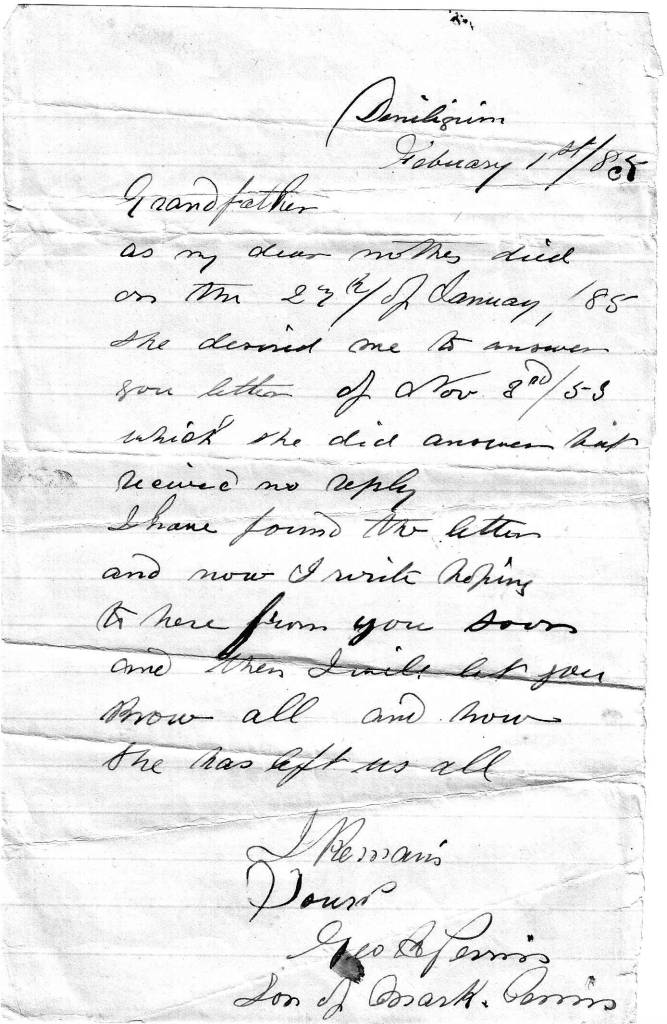 Deniliquin
Febuary 1st/85
Grandfather
as my dear mother died
on the 27th/ of January, /85
she desired me to answer
you letter of Nov 8rd/53
which she did answer but
recieved no reply
I have found the letter
and now I write hoping
to here from you soon
and then I will let you
know all and how
she has left us all
I Remain
Yours
Geo A Perrin
Son of Mark. Perrin